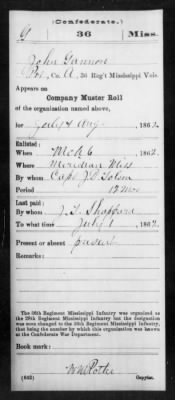 (Confederate.)
G 36 Miss.
John Gannon
Pvt, Co. A, 36 Reg't Mississippi Vols.
Appears on
Company Muster Roll
of the organization named above,
for July & Aug, 1862.
Enlisted:
When Mch 6, 1862
Where Meridian Miss
By whom Capt J.D.
Period 12 mos
Last paid:
By whom J. T. Sheppard
To what time July 1, 1862
Present or absent present
Remarks:
The 36th Regiment Mississippi Infantry was organized as
the 29th Regiment Mississippi Infantry but the designation
was soon changed to the 36th Regiment Mississippi Infantry,
that being the number by which this organization was known at
the Confederate War Department.
Book mark:
(642) Copyist.